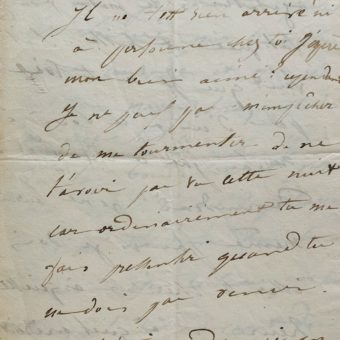 Il ne t'est rien arrivé ni
à personne chez toi j'espère
mon bien aimé; cependant
je ne peux pas m'empêcher
de me tourmenter de ne
t'avoir pas vu cette nuit
car ordinairement tu me
fais pressentir quand tu
ne dois pas venir.